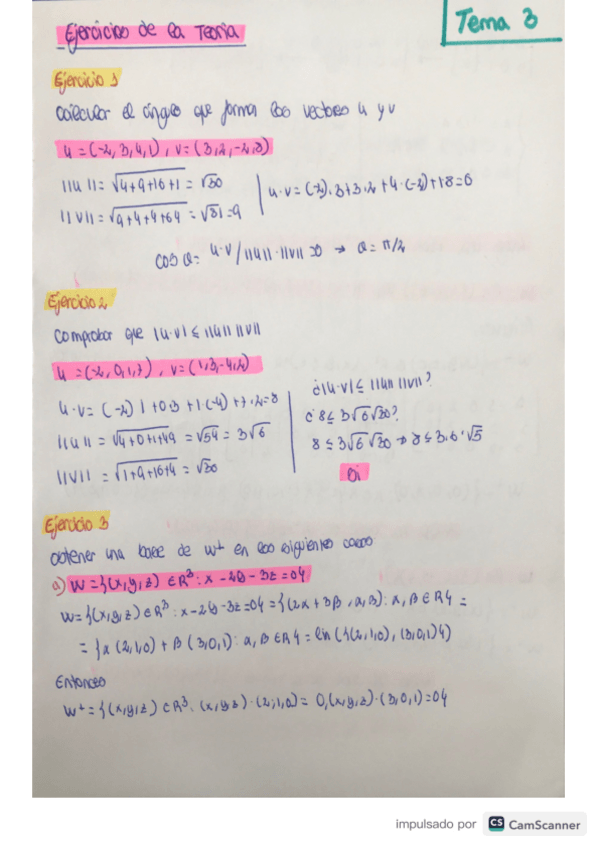 Tema 3
Ejercicios de la Teoría
Ejercicio 1
Calcular el ángulo que forma los vectores u y v
u = (-2, 3, 4, 1), v = (3, 2, -2, 8)
||u|| = √4+9+16+1 = √30
||v|| = √9+4+4+64 = √81 = 9
u·v = (-2)·3+3·2+4·(-2)+1·8=0
cos α = u·v/||u||·||v|| = 0 → α = π/2
Ejercicio 2
Comprobar que |u·v| ≤ ||u|| ||v||
u = (-2, 0, 1, 7), v = (1, 3, -4, 2)
u·v = (-2) 1 + 0·3 + 1·(-4) + 7·2 = 8
||u|| = √4+0+1+49 = √54 = 3√6
||v|| = √1+9+16+4 = √30
¿|u·v| ≤ ||u|| ||v||?
¿8 ≤ 3√6√30?
8 ≤ 3√6√30 → 8 ≤ 3·6·√5
Si
Ejercicio 3
Obtener una base de W⊥ en los siguientes casos
a) W = {(x,y,z) ∈ R³: x - 2y - 3z = 0}
W = {(x,y,z) ∈ R³: x - 2y - 3z = 0} = {(2α + 3β, α, β): α, β ∈ R} =
= {α (2,1,0) + β (3,0,1): α, β ∈ R} = lin ({(2,1,0), (3,0,1)})
Entonces
W⊥ = {(x,y,z) ∈ R³: (x,y,z)·(2,1,0) = 0, (x,y,z)·(3,0,1) = 0}
impulsado por CS CamScanner